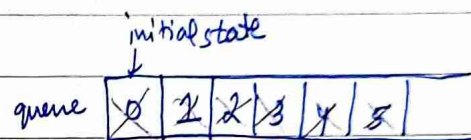 initial state
queue 0 1 2 3 4 5